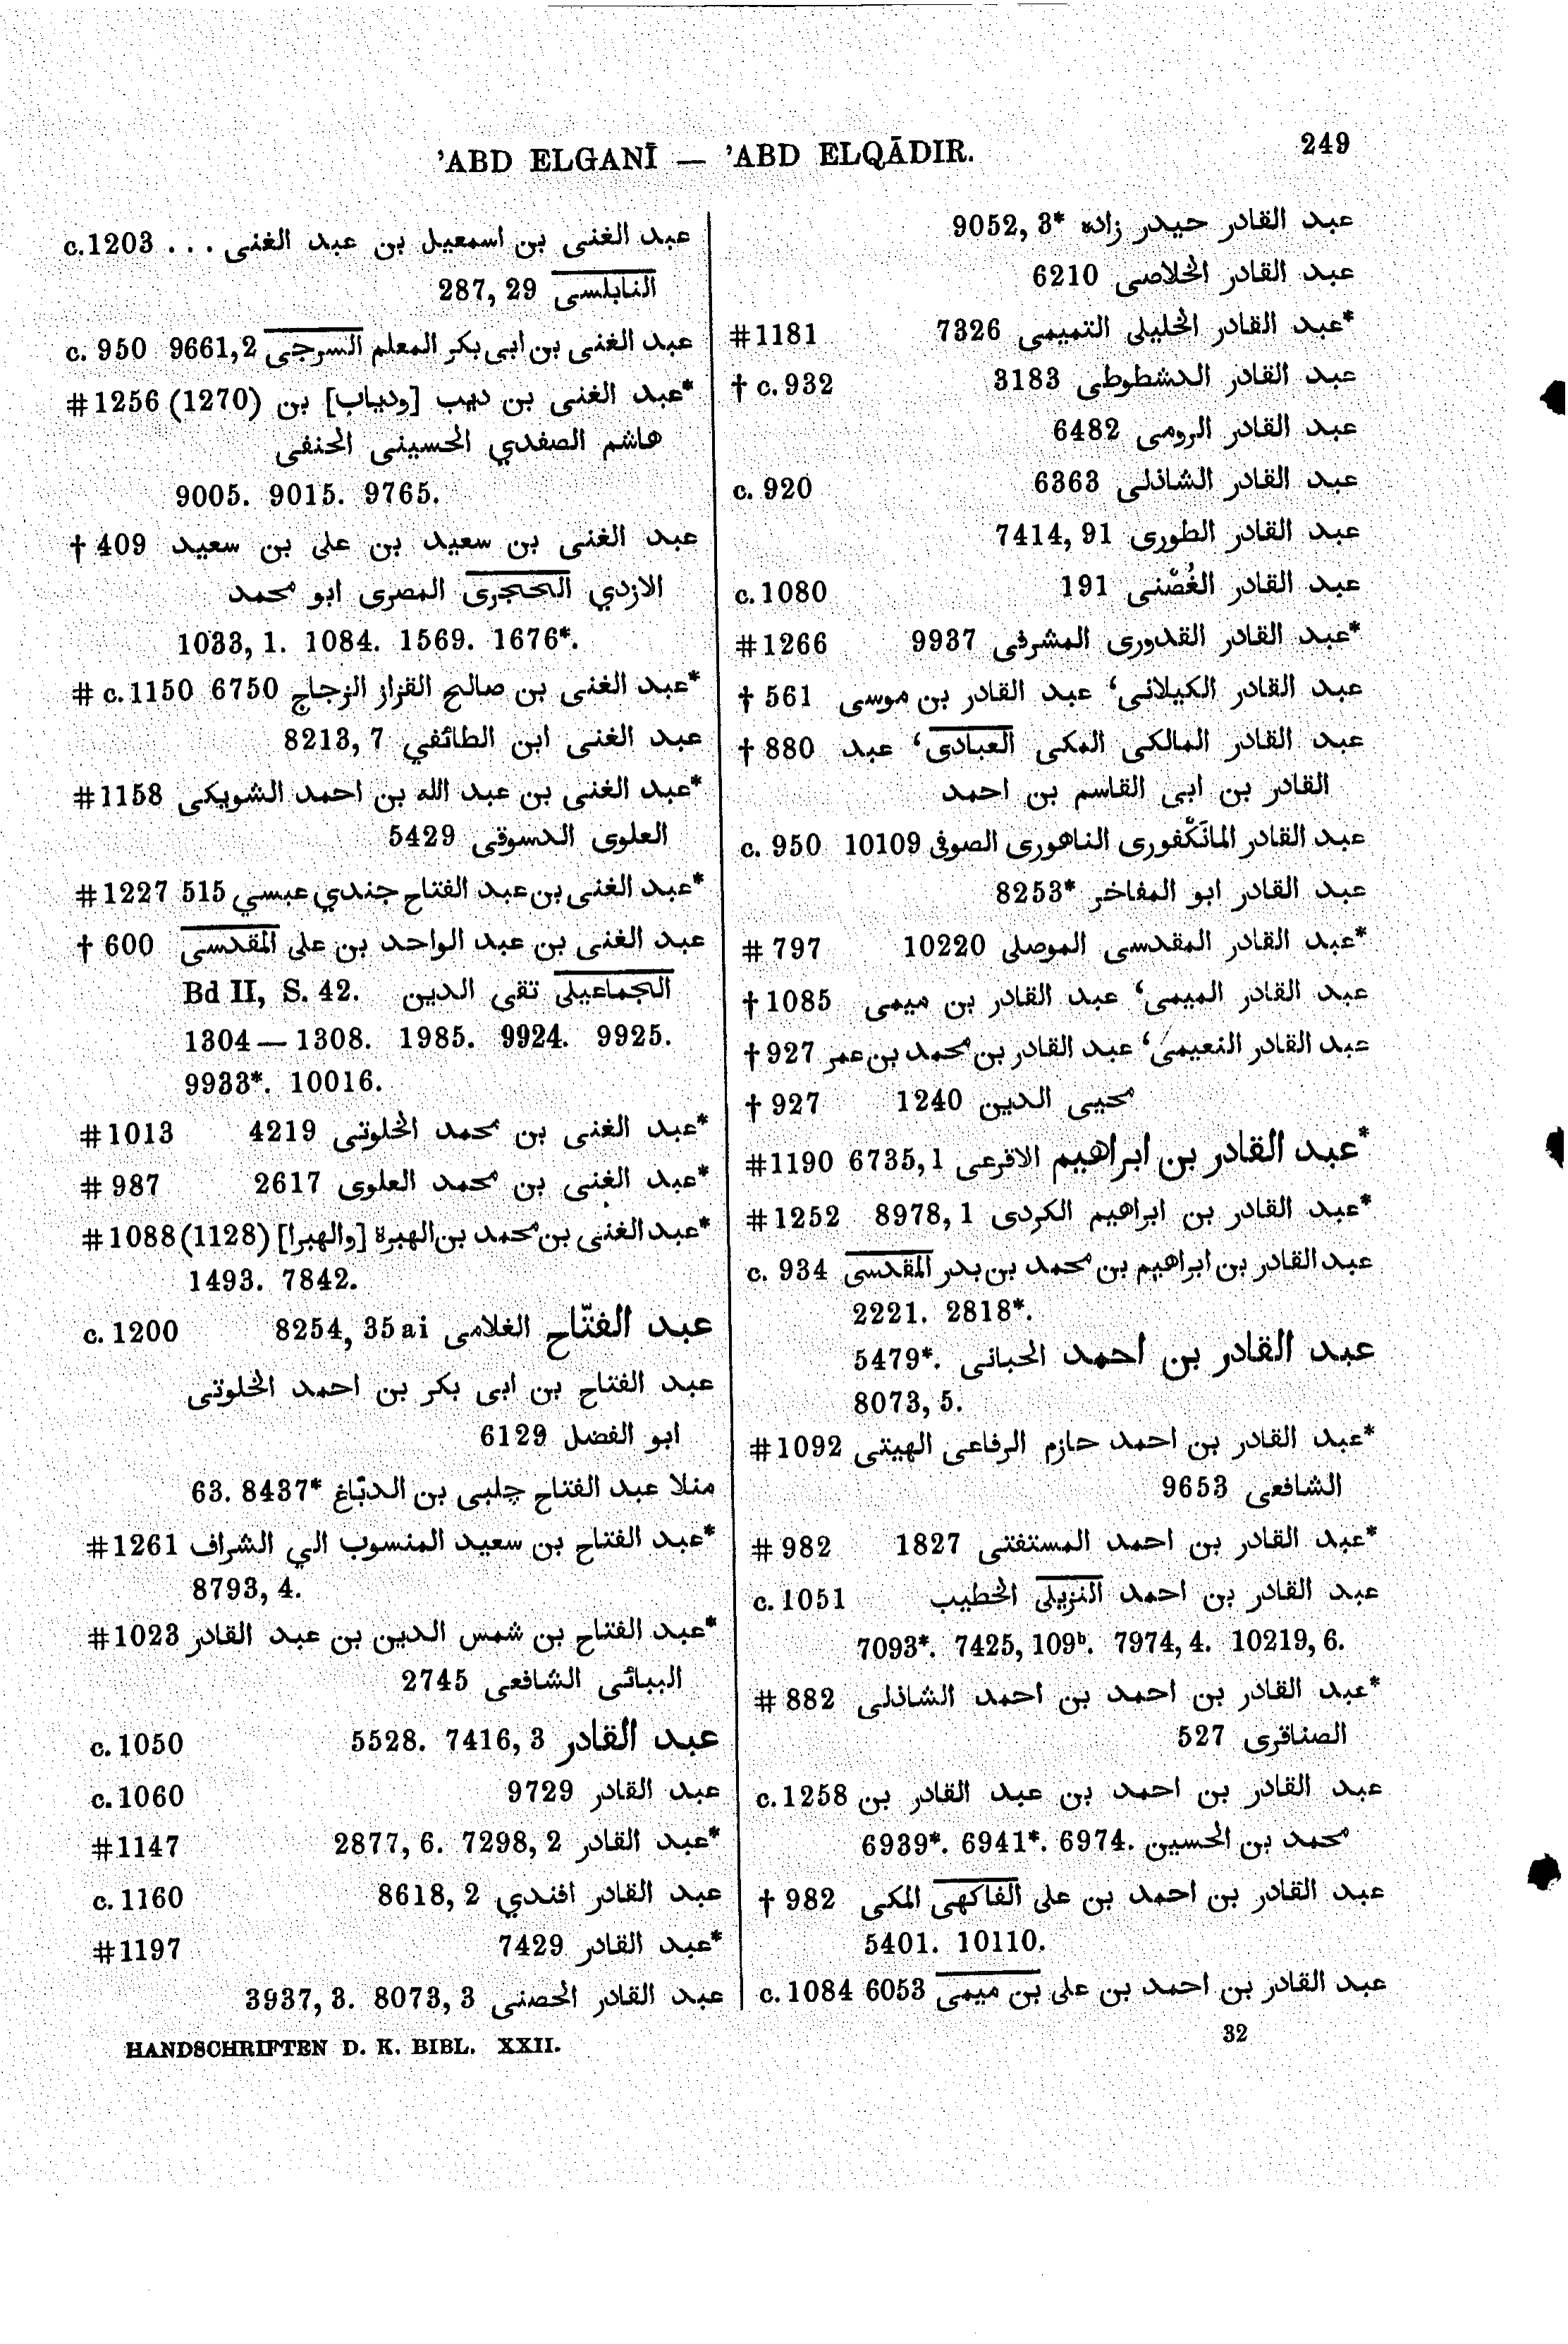 'ABD ELGANĪ — 'ABD ELQĀDIR.
249
عبد الغنى بن اسمعيل بن عبد الغنى . . . c. 1203
النابلسى 287, 29
عبد الغنى بن ابى بكر المعلم السرجى 9661,2 c. 950
*عبد الغنى بن ديب [ودياب] بن (1270) 1256#
هاشم الصفدي الحسينى الحنفى
9005. 9015. 9765.
عبد الغنى بن سعيد بن على بن سعيد 409 †
الازدي الحجرى المصرى ابو محمد
1033, 1. 1084. 1569. 1676*.
*عبد الغنى بن صالح القزاز الزجاج 6750 c. 1150 #
عبد الغنى ابن الطائفي 8213, 7
*عبد الغنى بن عبد الله بن احمد الشويكى 1158#
العلوى الدسوقى 5429
*عبد الغنى بن عبد الفتاح جندي عبسي 515 1227#
عبد الغنى بن عبد الواحد بن على المقدسى 600 †
الجماعيلى تقى الدين Bd II, S. 42.
1304 — 1308. 1985. 9924. 9925.
9933*. 10016.
*عبد الغنى بن محمد الخلوتى 4219 1013#
*عبد الغنى بن محمد العلوى 2617 987 #
*عبد الغنى بن محمد بن الهبرة [والهبرا] (1128) 1088#
1493. 7842.
عبد الفتّاح الغلامى 8254, 35ai c. 1200
عبد الفتاح بن ابى بكر بن احمد الخلوتى
ابو الفضل 6129
منلا عبد الفتاح چلبى بن الدبّاغ 63. 8437*
*عبد الفتاح بن سعيد المنسوب الي الشراف 1261#
8793, 4.
*عبد الفتاح بن شمس الدين بن عبد القادر 1023#
الشافعى 2745
عبد القادر 5528. 7416, 3 c. 1050
عبد القادر 9729 c. 1060
*عبد القادر 2877, 6. 7298, 2 1147#
عبد القادر افندي 8618, 2 c. 1160
*عبد القادر 7429 1197#
عبد القادر الحصنى 3937, 3. 8073, 3
عبد القادر حيدر زاده 9052, 3*
عبد القادر الخلاصى 6210
*عبد القادر الخليلى التميمى 7326 1181#
عبد القادر الدشطوطى 3183 c. 932 †
عبد القادر الرومى 6482
عبد القادر الشاذلى 6363 c. 920
عبد القادر الطورى 7414, 91
عبد القادر الغُصْنى 191 c. 1080
*عبد القادر القدورى المشرفى 9937 1266#
عبد القادر الكيلانى، عبد القادر بن موسى 561 †
عبد القادر المالكى المكى العبادى، عبد 880 †
القادر بن ابى القاسم بن احمد
عبد القادر المانَكْفورى الناهورى الصوفى 10109 c. 950
عبد القادر ابو المفاخر 8253*
*عبد القادر المقدسى الموصلى 10220 797 #
عبد القادر الميمى، عبد القادر بن ميمى 1085 †
عبد القادر النعيمى، عبد القادر بن محمد بن عمر 927 †
محيى الدين 1240 927 †
*عبد القادر بن ابراهيم الاقرعى 6735,1 1190#
*عبد القادر بن ابراهيم الكردى 8978, 1 1252#
عبد القادر بن ابراهيم بن محمد بن بدر المقدسى c. 934
2221. 2818*.
عبد القادر بن احمد الحبانى 5479*.
8073, 5.
*عبد القادر بن احمد حازم الرفاعى الهيتى 1092#
الشافعى 9653
*عبد القادر بن احمد المستفتى 1827 982 #
عبد القادر بن احمد النزيلى الخطيب c. 1051
7093*. 7425, 109b. 7974, 4. 10219, 6.
*عبد القادر بن احمد بن احمد الشاذلى 882 #
الصناقرى 527
عبد القادر بن احمد بن عبد القادر بن c. 1258
محمد بن الحسين 6939*. 6941*. 6974.
عبد القادر بن احمد بن على الفاكهى المكى 982 †
5401. 10110.
عبد القادر بن احمد بن على بن ميمى 6053 c. 1084
HANDSCHRIFTEN D. K. BIBL. XXII.
32